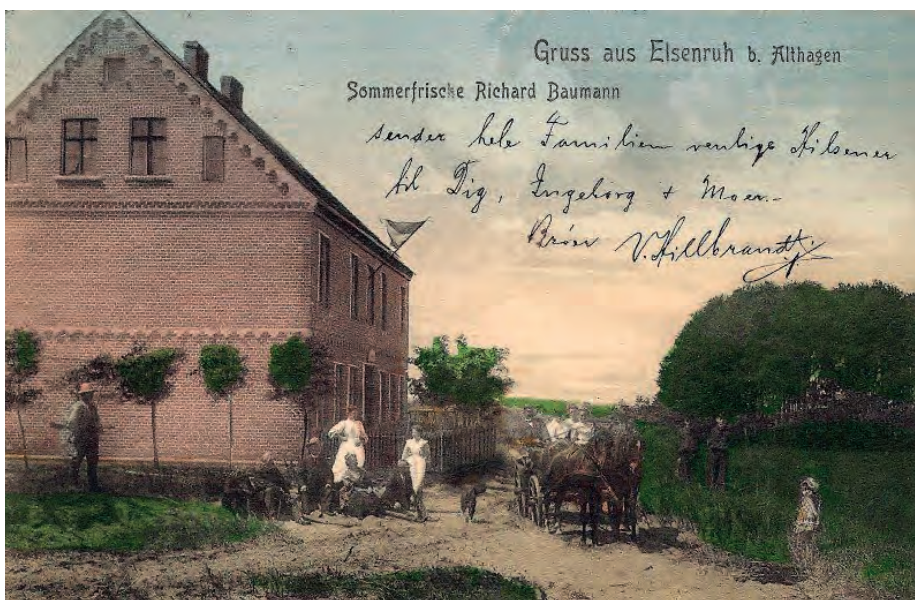 Gruss aus Elsenruh b. Althagen
Sommerfrische Richard Baumann
sender hele Familien venlige Hilsener
til Dig, Ingeborg + Moer.-
V. Hillbrandt